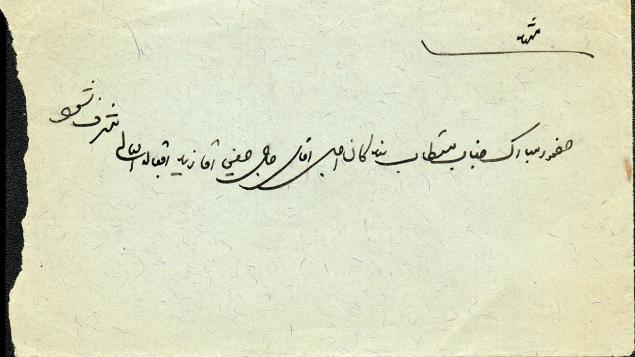 مشهد
حضور مبارک جناب مستطاب بندگان اجل آقای حاجی حقیر آقا زید اقباله العالی
مشرف شود